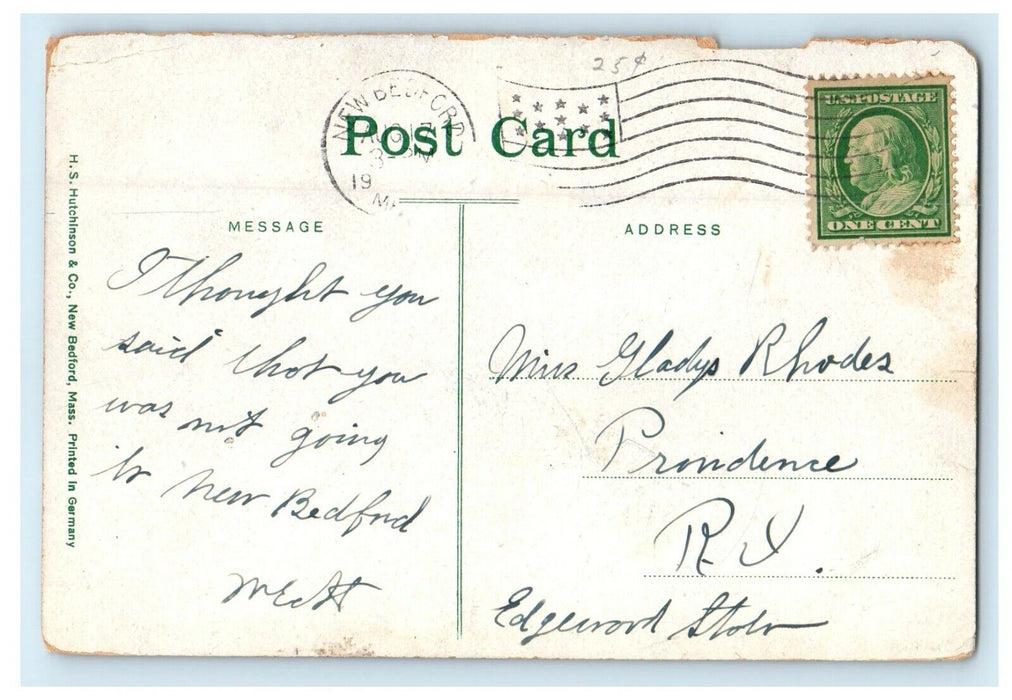 25¢
NEW BEDFORD
19
U.S. POSTAGE
ONE CENT
Post Card
MESSAGE
ADDRESS
H. S. Hutchinson & Co., New Bedford, Mass. Printed in Germany
I thought you
said that you
was not going
to New Bedford
Miss Gladys Rhodes
Providence
R. I.
Edgewood